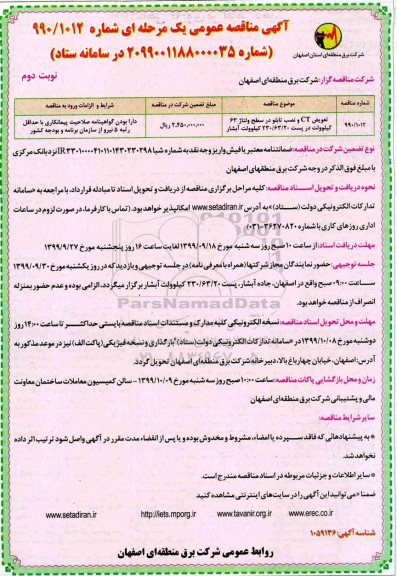 آگهی مناقصه عمومی یک مرحله ای شماره ۹۹۰/۱۰۱۲
(شماره ۲۰۹۹۰۰۱۱۸۸۰۰۰۰۳۵ در سامانه ستاد)
شرکت برق منطقه‌ای استان اصفهان
نوبت دوم
شرکت مناقصه گزار: شرکت برق منطقه‌ای اصفهان
شماره مناقصه
موضوع مناقصه
مبلغ تضمین شرکت در مناقصه
شرایط و الزامات ورود به مناقصه
۹۹۰/۱۰۱۲
تعویض CT و نصب تابلو در سطح ولتاژ ۶۳ کیلوولت در پست ۲۳۰/۶۳/۲۰ کیلوولت آبشار
۲،۴۵۰،۰۰۰،۰۰۰ ریال
دارا بودن گواهینامه صلاحیت پیمانکاری با حداقل رتبه ۵ نیرو از سازمان برنامه و بودجه کشور
نوع تضمین شرکت در مناقصه: ضمانتنامه معتبر یا فیش واریز وجه نقد به شماره شبا IR۳۳۰۱۰۰۰۰۴۱۰۱۱۰۱۴۳۰۲۳۳۰۲۹۸ نزد بانک مرکزی
با مبلغ فوق الذکر در وجه شرکت برق منطقه‌ای اصفهان
نحوه دریافت و تحویل اسناد مناقصه: کلیه مراحل برگزاری مناقصه از دریافت و تحویل اسناد تا مبادله قرارداد، با مراجعه به سامانه
تدارکات الکترونیکی دولت (ستاد)» به آدرس www.setadiran.ir امکانپذیر خواهد بود. (تماس با کارفرما، در صورت لزوم در ساعات
اداری روزهای کاری با شماره ۳۶۴۷۰۸۲۰-۰۳۱)
مهلت دریافت اسناد: از ساعت ۱۰ صبح روز سه شنبه مورخ ۱۳۹۹/۰۹/۱۸ لغایت ساعت ۱۶ روز پنجشنبه مورخ ۱۳۹۹/۹/۲۷
جلسه توجیهی: حضور نمایندگان مجاز شرکتها (همراه با معرفی نامه) در جلسه توجیهی و بازدید که در روز یکشنبه مورخ ۱۳۹۹/۰۹/۳۰
ساعت ۰۹:۰۰ صبح واقع در اصفهان، جاده آبشار، پست ۲۳۰/۶۳/۲۰ کیلوولت آبشار برگزار میگردد، الزامی بوده و عدم حضور بمنزله
انصراف از مناقصه خواهد بود.
مهلت و محل تحویل اسناد مناقصه: نسخه الکترونیکی کلیه مدارک و مستندات اسناد مناقصه بایستی حداکثر تا ساعت ۱۴:۰۰ روز
دوشنبه مورخ ۱۳۹۹/۱۰/۰۸ در «سامانه تدارکات الکترونیکی دولت (ستاد)» بارگذاری و نسخه فیزیکی (پاکت الف) نیز در موعد مذکور به
آدرس: اصفهان، خیابان چهارباغ بالا، دبیرخانه شرکت برق منطقه‌ای اصفهان تحویل گردد.
زمان و محل بازگشایی پاکات مناقصه: ساعت ۱۰:۰۰ صبح روز سه شنبه مورخ ۱۳۹۹/۱۰/۰۹ - سالن کمیسیون معاملات ساختمان معاونت
مالی و پشتیبانی شرکت برق منطقه‌ای اصفهان
سایر شرایط مناقصه:
* به پیشنهادهائی که فاقد سپرده یا امضاء، مشروط و مخدوش بوده و یا پس از انقضاء مدت مقرر در آگهی واصل شود ترتیب اثر داده
نخواهد شد.
* سایر اطلاعات و جزئیات مربوطه در اسناد مناقصه مندرج است.
ضمنا «می‌توانید این آگهی را در سایت‌های اینترنتی مشاهده کنید
www.erec.co.ir
www.tavanir.org.ir
http://iets.mporg.ir
www.setadiran.ir
شناسه آگهی: ۱۰۵۹۱۳۶
روابط عمومی شرکت برق منطقه‌ای اصفهان
ParsNamadData